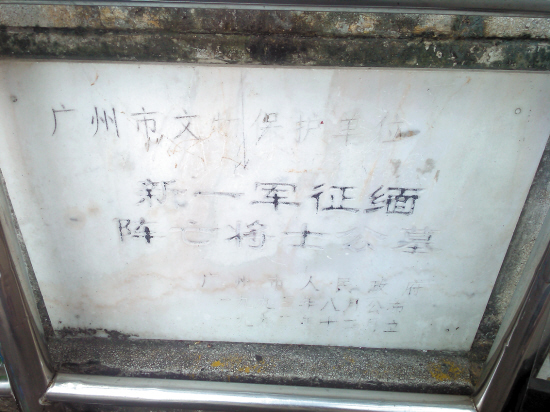 广州市文物保护单位
新一军征缅
阵亡将士公墓
广州市人民政府
八月公布